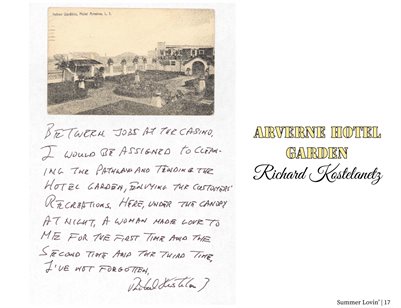 Italian Gardens, Hotel Arverne, L. I.
BETWEEN JOBS AT THE CASINO,
I WOULD BE ASSIGNED TO CLEAN-
ING THE PATHWAY AND TENDING THE
HOTEL GARDEN, ENVYING THE CUSTOMERS'
RECREATIONS. HERE, UNDER THE CANOPY
AT NIGHT, A WOMAN MADE LOVE TO
ME FOR THE FIRST TIME AND THE
SECOND TIME AND THE THIRD TIME,
I'VE NOT FORGOTTEN.
ARVERNE HOTEL
GARDEN
Richard Kostelanetz
Summer Lovin' | 17